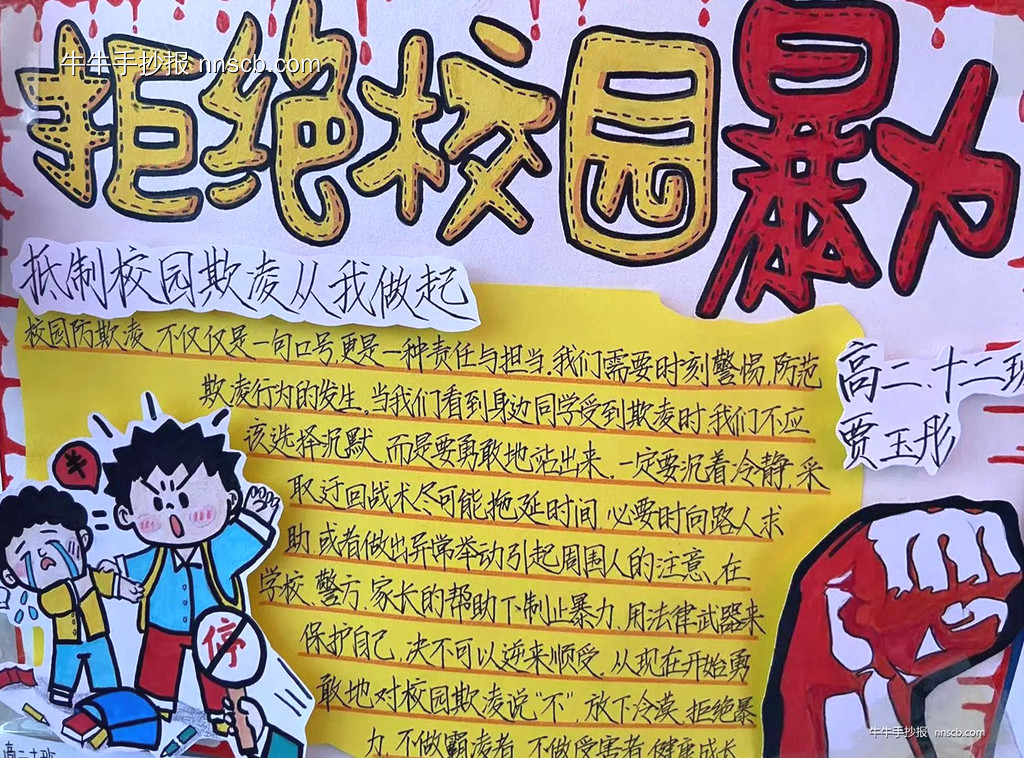 牛牛手抄报 nnscb.com
拒绝校园暴力
抵制校园欺凌从我做起
校园防欺凌,不仅仅是一句口号更是一种责任与担当,我们需要时刻警惕,防范
欺凌行为的发生。当我们看到身边同学受到欺凌时,我们不应
该选择沉默,而是要勇敢地站出来。一定要沉着冷静,采
取迂回战术尽可能拖延时间,必要时向路人求
助,或者做出异常举动引起周围人的注意,在
学校、警方、家长的帮助下制止暴力,用法律武器来
保护自己,决不可以逆来顺受,从现在开始勇
敢地对校园欺凌说“不”,放下冷漠,拒绝暴
力,不做霸凌者,不做受害者,健康成长
高二、十二班
贾玉彤
停
高二十班
牛牛手抄报 nnscb.com